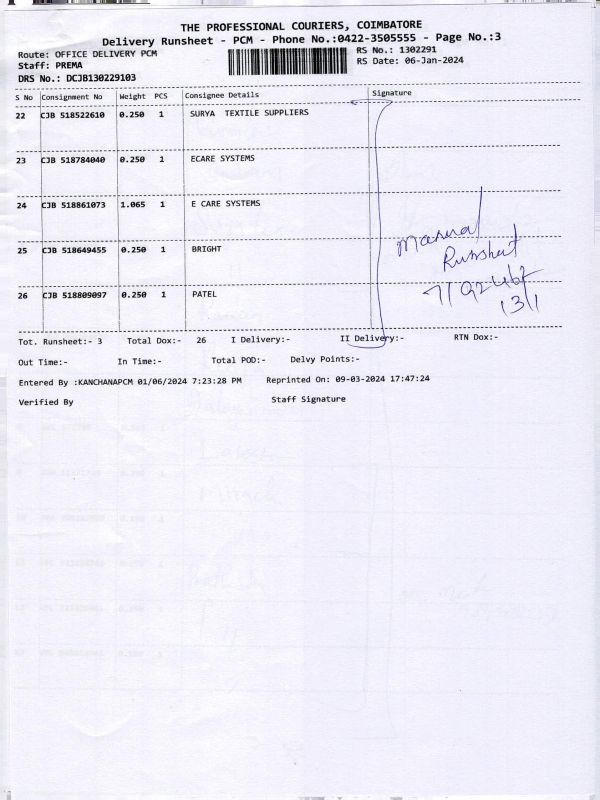 THE PROFESSIONAL COURIERS, COIMBATORE
Delivery Runsheet - PCM - Phone No.:0422-3505555 - Page No.:3
Route: OFFICE DELIVERY PCM
RS No.: 1302291
Staff: PREMA
RS Date: 06-Jan-2024
DRS No.: DCJB130229103
S No Consignment No Weight PCS Consignee Details Signature
22 CJB 518522610 0.250 1 SURYA TEXTILE SUPPLIERS
23 CJB 518784040 0.250 1 ECARE SYSTEMS
24 CJB 518861073 1.065 1 E CARE SYSTEMS
25 CJB 518649455 0.250 1 BRIGHT
26 CJB 518809097 0.250 1 PATEL
Manual
Runsheet
13/1
Tot. Runsheet:- 3 Total Dox:- 26 I Delivery:- II Delivery:- RTN Dox:-
Out Time:- In Time:- Total POD:- Delvy Points:-
Entered By :KANCHANAPCM 01/06/2024 7:23:28 PM Reprinted On: 09-03-2024 17:47:24
Verified By Staff Signature